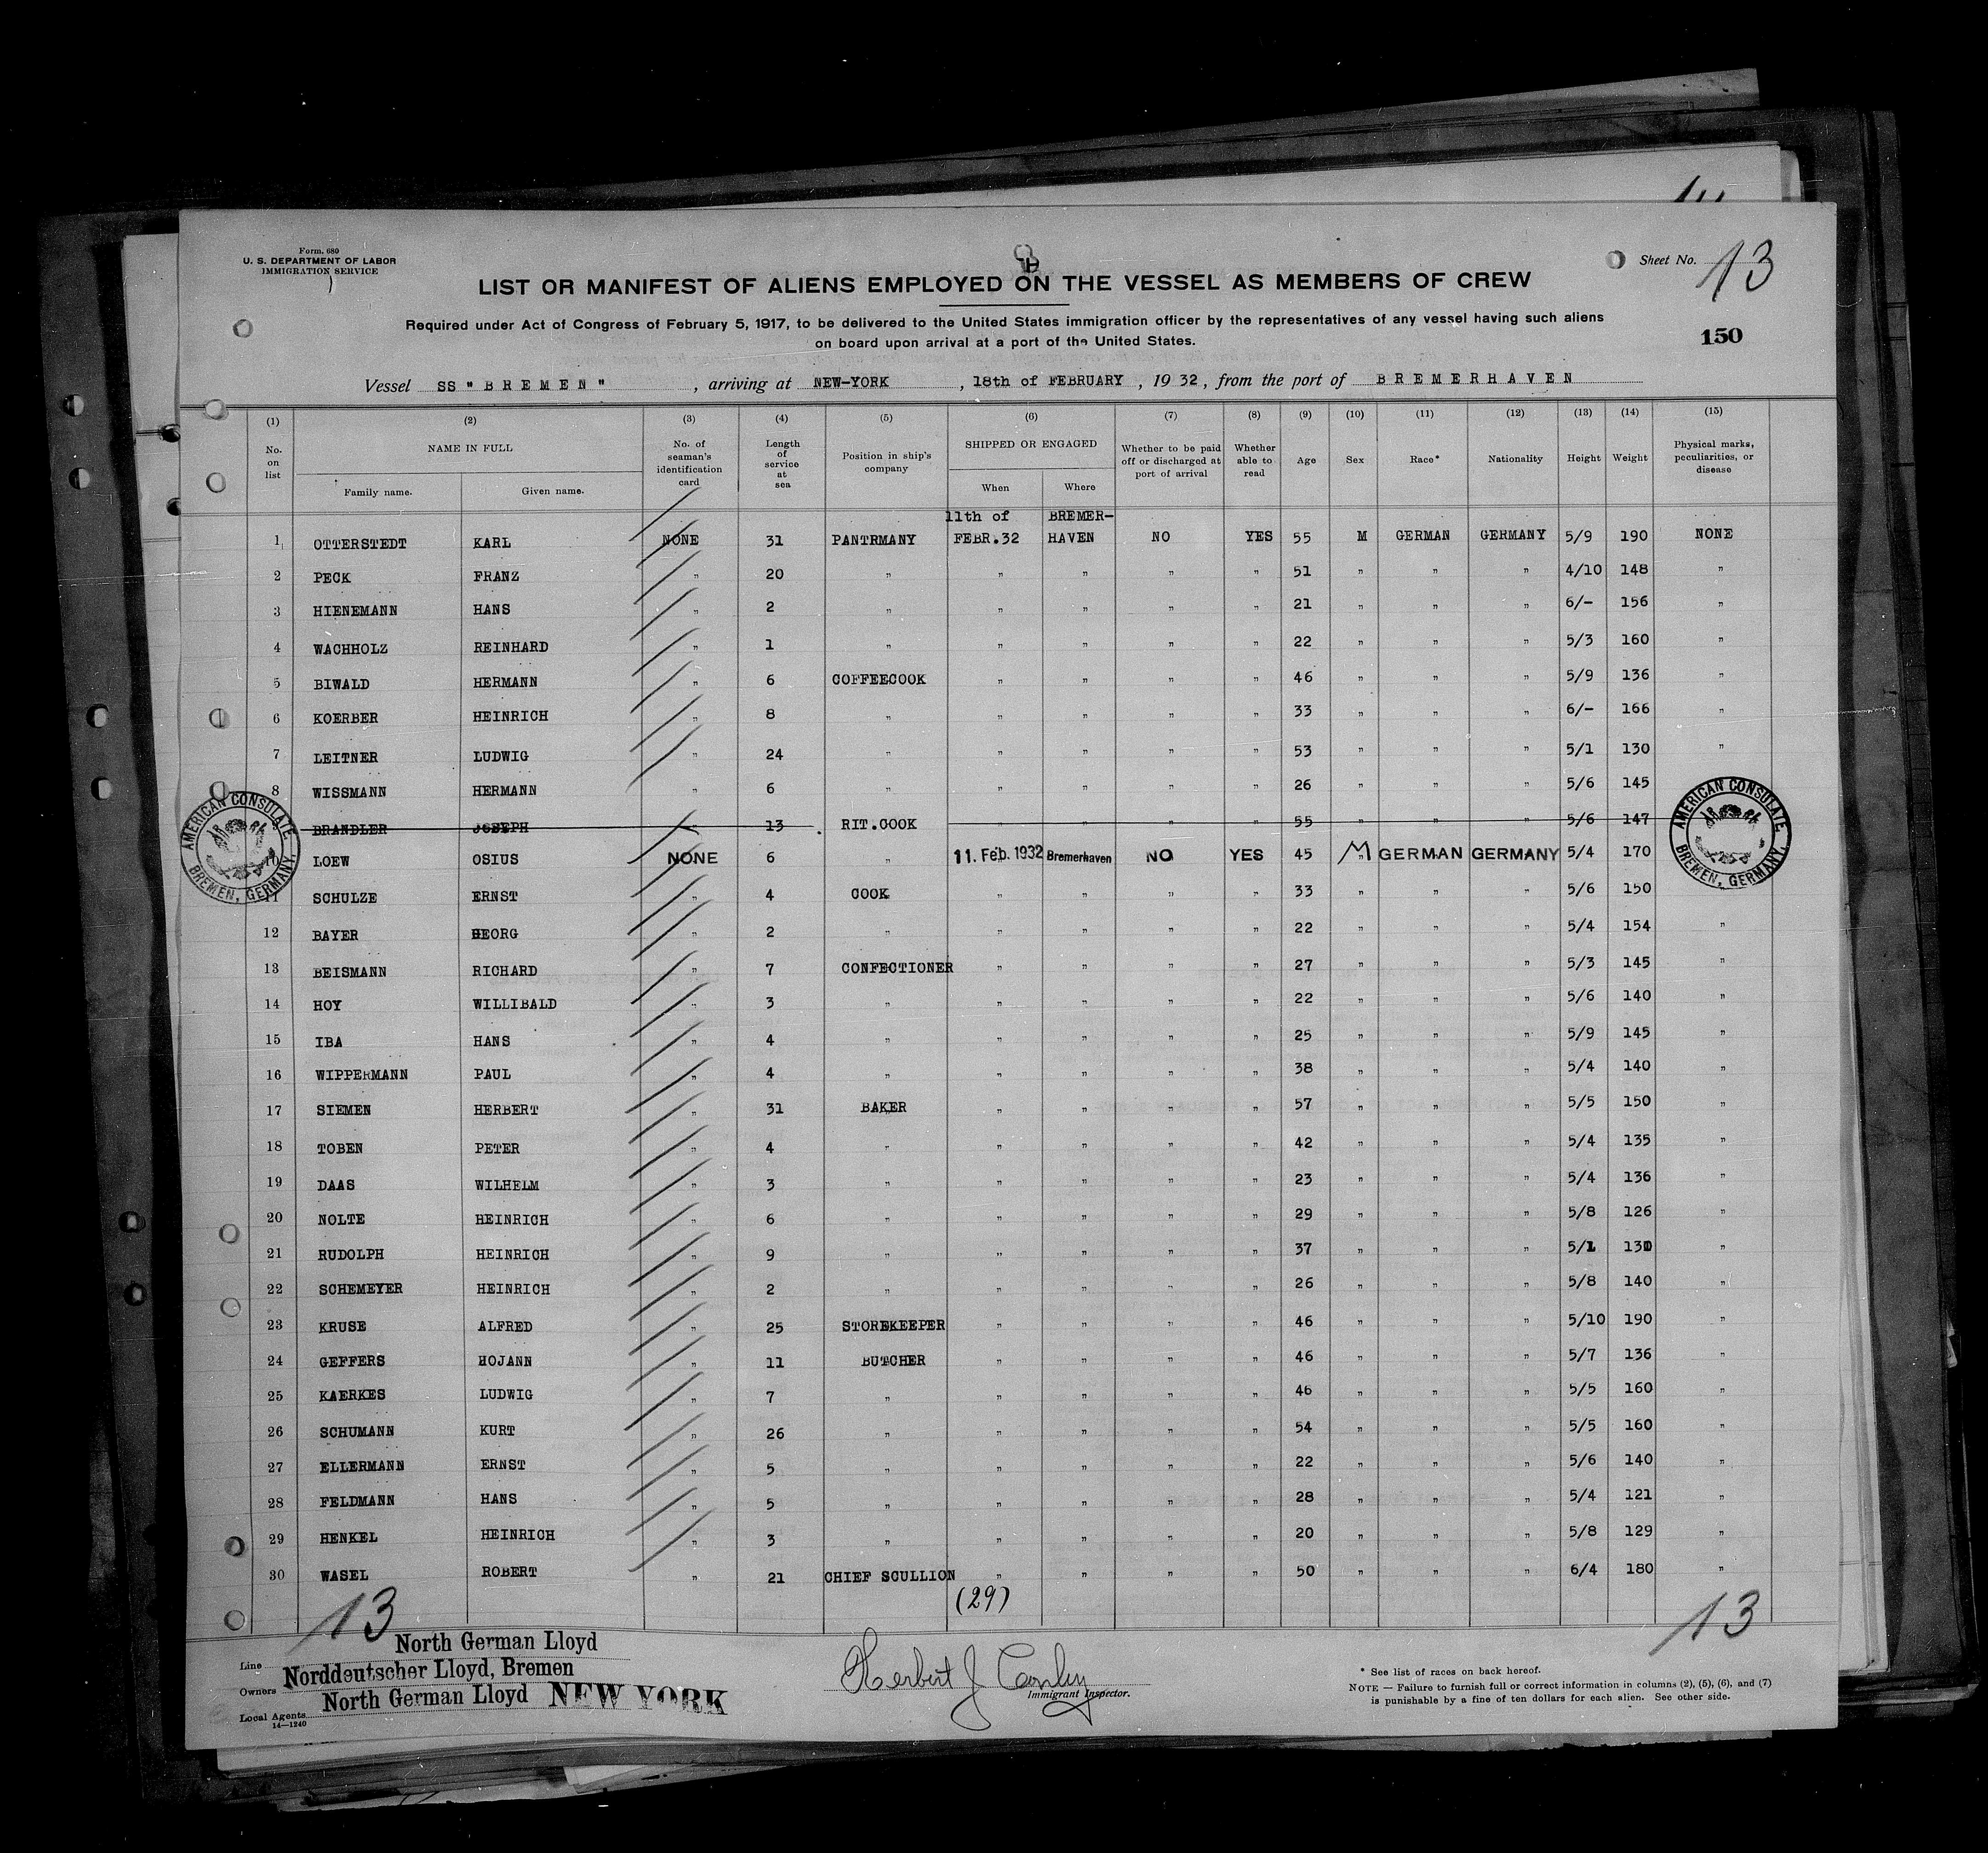 Form. 680
U. S. DEPARTMENT OF LABOR
IMMIGRATION SERVICE
Sheet No. 13
LIST OR MANIFEST OF ALIENS EMPLOYED ON THE VESSEL AS MEMBERS OF CREW
Required under Act of Congress of February 5, 1917, to be delivered to the United States immigration officer by the representatives of any vessel having such aliens
on board upon arrival at a port of the United States.
150
Vessel SS "BREMEN", arriving at NEW-YORK, 18th of FEBRUARY, 1932, from the port of BREMERHAVEN
(1) (2) (3) (4) (5) (6) (7) (8) (9) (10) (11) (12) (13) (14) (15)
No. on list NAME IN FULL Family name. Given name. No. of seaman's identification card Length of service at sea Position in ship's company SHIPPED OR ENGAGED When Where Whether to be paid off or discharged at port of arrival Whether able to read Age Sex Race* Nationality Height Weight Physical marks, peculiarities, or disease
11th of BREMER-
1 OTTERSTEDT KARL NONE 31 PANTRMANY FEBR.32 HAVEN NO YES 55 M GERMAN GERMANY 5/9 190 NONE
2 PECK FRANZ " 20 " " " " " 51 " " " 4/10 148 "
3 HIENEMANN HANS " 2 " " " " " 21 " " " 6/- 156 "
4 WACHHOLZ REINHARD " 1 " " " " " 22 " " " 5/3 160 "
5 BIWALD HERMANN " 6 COFFEECOOK " " " " 46 " " " 5/9 136 "
6 KOERBER HEINRICH " 8 " " " " " 33 " " " 6/- 166 "
7 LEITNER LUDWIG " 24 " " " " " 53 " " " 5/1 130 "
8 WISSMANN HERMANN " 6 " " " " " 26 " " " 5/6 145 "
BRANDLER JOSEPH 13 RIT.COOK " " " " 55 " " " 5/6 147
10 LOEW OSIUS NONE 6 " 11. Feb. 1932 Bremerhaven NO YES 45 M GERMAN GERMANY 5/4 170
11 SCHULZE ERNST " 4 COOK " " " " 33 " " " 5/6 150
12 BAYER GEORG " 2 " " " " " 22 " " " 5/4 154 "
13 BEISMANN RICHARD " 7 CONFECTIONER " " " " 27 " " " 5/3 145 "
14 HOY WILLIBALD " 3 " " " " " 22 " " " 5/6 140 "
15 IBA HANS " 4 " " " " " 25 " " " 5/9 145 "
16 WIPPERMANN PAUL " 4 " " " " " 38 " " " 5/4 140 "
17 SIEMEN HERBERT " 31 BAKER " " " " 57 " " " 5/5 150 "
18 TOBEN PETER " 4 " " " " " 42 " " " 5/4 135 "
19 DAAS WILHELM " 3 " " " " " 23 " " " 5/4 136 "
20 NOLTE HEINRICH " 6 " " " " " 29 " " " 5/8 126 "
21 RUDOLPH HEINRICH " 9 " " " " " 37 " " " 5/1 131 "
22 SCHEMEYER HEINRICH " 2 " " " " " 26 " " " 5/8 140 "
23 KRUSE ALFRED " 25 STOREKEEPER " " " " 46 " " " 5/10 190 "
24 GEFFERS HOJANN " 11 BUTCHER " " " " 46 " " " 5/7 136 "
25 KAERKES LUDWIG " 7 " " " " " 46 " " " 5/5 160 "
26 SCHUMANN KURT " 26 " " " " " 54 " " " 5/5 160 "
27 ELLERMANN ERNST " 5 " " " " " 22 " " " 5/6 140 "
28 FELDMANN HANS " 5 " " " " " 28 " " " 5/4 121 "
29 HENKEL HEINRICH " 3 " " " " " 20 " " " 5/8 129 "
30 WASEL ROBERT " 21 CHIEF SCULLION " " " " 50 " " " 6/4 180 "
AMERICAN CONSULATE
BREMEN, GERMANY.
AMERICAN CONSULATE
BREMEN, GERMANY.
(29)
13
13
Line North German Lloyd
Owners Norddeutscher Lloyd, Bremen
Local Agents North German Lloyd NEW YORK
14—1240
Herbert J Conley
Immigrant Inspector.
* See list of races on back hereof.
NOTE — Failure to furnish full or correct information in columns (2), (5), (6), and (7)
is punishable by a fine of ten dollars for each alien. See other side.